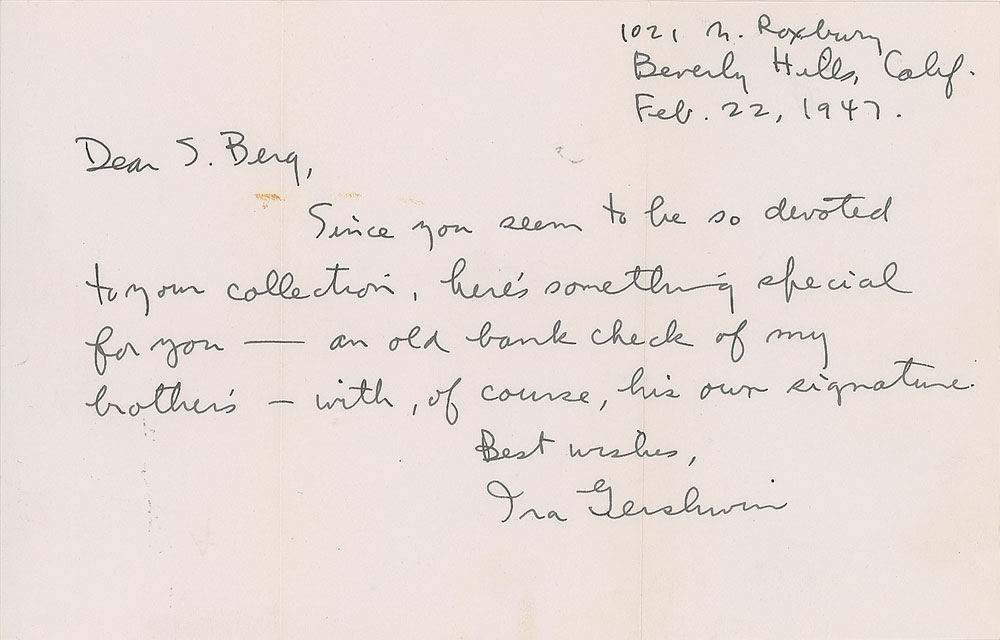 1021 N. Roxbury
Beverly Hills, Calif.
Feb. 22, 1947.
Dear S. Berg,
Since you seem to be so devoted
to your collection, here's something special
for you — an old bank check of my
brother's — with, of course, his own signature.
Best wishes,
Ira Gershwin